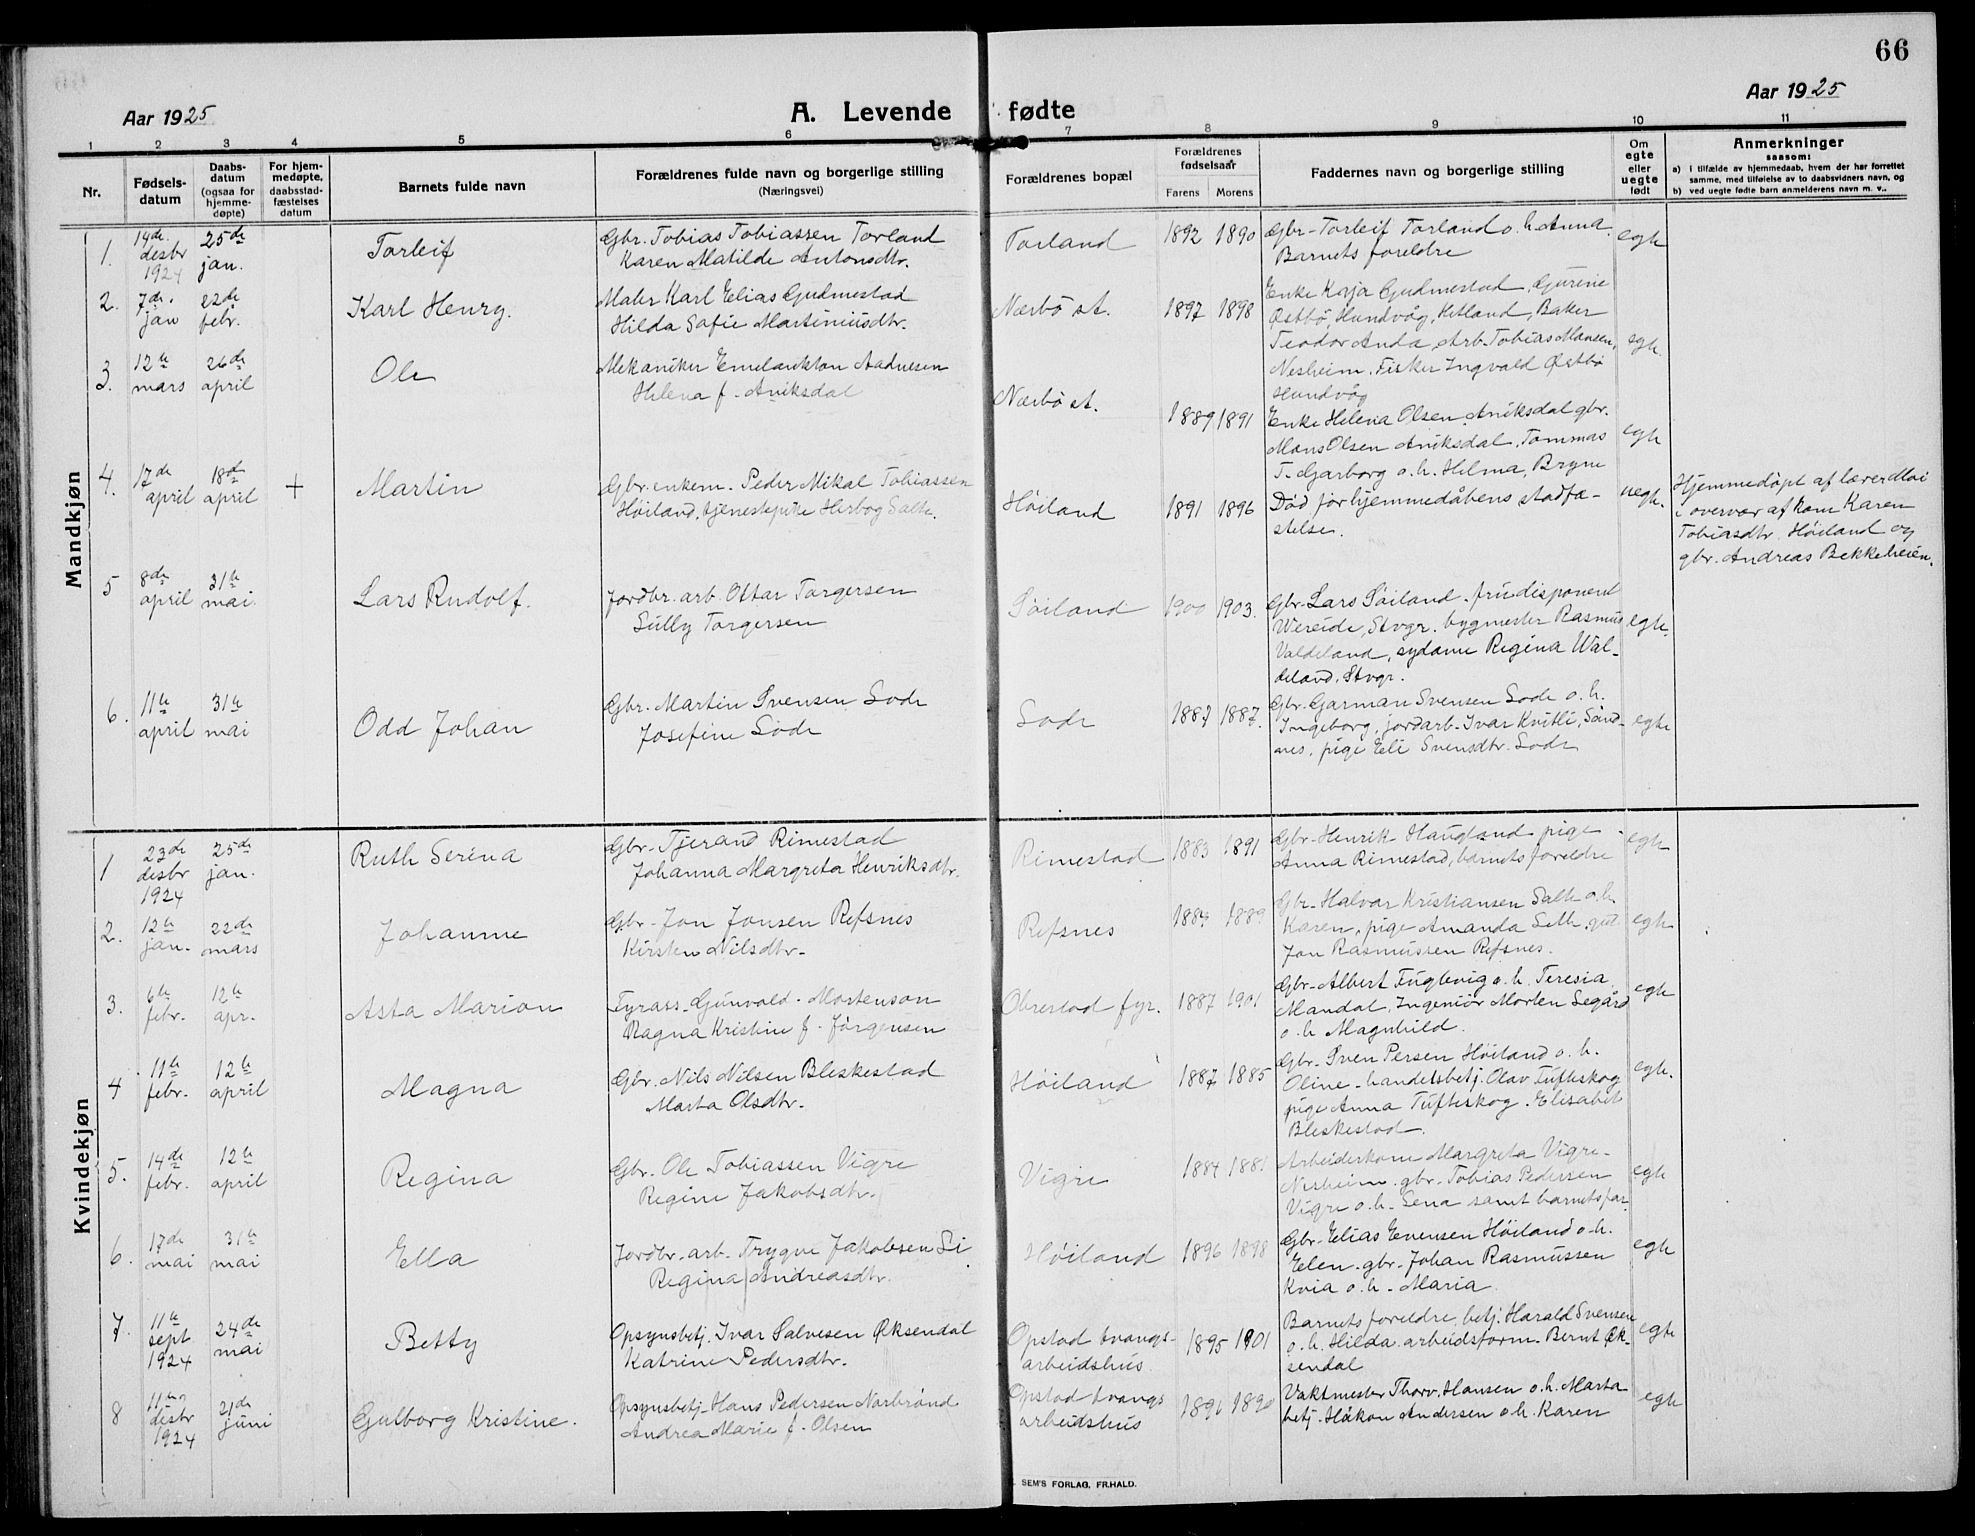 66
Aar 1925
A. Levende fødte
Aar 1925
1 2 3 4 5 6 7 8 9 10 11
Nr.
Fødsels-
datum
Daabs-
datum
(ogsaa for
hjemme-
døpte)
For hjem-
medøpte,
daabsstad-
fæstelses
datum
Barnets fulde navn
Forældrenes fulde navn og borgerlige stilling
(Næringsvei)
Forældrenes bopæl
Forældrenes
fødselsaar
Farens Morens
Faddernes navn og borgerlige stilling
Om
egte
eller
uegte
født
Anmerkninger
saasom:
a) i tilfælde av hjemmedaab, hvem der har forrettet
samme, med tilføielse av to daabsvidners navn, og
b) ved uegte fødte barn anmelderens navn m. v..
Mandkjøn
1. 14de desbr 1924 25de jan. Torleif
Gbr. Tobias Tobiassen Torland
Karen Matilde Antonsdtr.
Torland 1892 1890
Gbr. Torleif Torland o. h. Anna.
Barnets foreldre
egte
2. 7de jan 22de febr. Karl Henry.
Maler Karl Elias Gudmestad
Hilda Safie Martiniusdtr.
Nærbö st. 1897 1898
Enke Kaja Gudmestad, Gurine
Østbö, Hundvåg, Hetland, Baker
Teodor Anda, Arb. Tobias Monsen,
Nesheim. Fisker Ingvald Østbö
Hundvåg
egte.
3. 12te mars 26de april Ole
Mekaniker Emelankton Aadnesen
Helena f. Aniksdal
Nærbö st. 1889 1891
Enke Helena Olsen Aniksdal gbr.
Mons Olsen Aniksdal, Tommas
T. Garborg o. h. Helma, Bryne
egte
4. 17de april 18de april + Martin
Gbr. enkem. Peder Mikal Tobiassen
Höiland, tjenestepike Herbog Salte.
Höiland 1891 1896
Död för hjemmedåbens stadfæ-
stelse.
uegte.
Hjemmedöpt af lærer
i overvær af kone Karen
Tobiasdtr. Höiland og
gbr. Andreas Bekkeheien.
5 8de april 31te mai. Lars Rudolf.
Jordbr. arb. Ottar Torgersen
Sully Torgersen
Söiland 1900 1903.
Gbr. Lars Söiland, fru disponent
Wereide, Stvgr. bygmester Rasmus
Valdeland, sydame Regina Wal-
deland, Stvgr.
egte.
6. 11te april 31te mai Odd Johan
Gbr. Martin Svensen Lode
Josefine Lode
Lode 1887 1887.
Gbr. Garman Svensen Lode o. h.
Ingeborg, jordarb. Ivar Kvitli, Sand-
nes, pige Eli Svensdtr. Lode
egte
Kvindekjøn
1 23de desbr 1924 25de jan. Ruth Serina
Gbr. Tjerand Rimestad
Johanna Margreta Henriksdtr.
Rimestad 1883 1891
Gbr. Henrik Haugland pige
Anna Rimestad, barnets foreldre
egte
2. 12te jan. 22de mars Johanne
Gbr. Jon Jonsen Refsnes
Kirsten Nilsdtr.
Refsnes 1884 1889
Gbr. Halvar Kristiansen Salte o. h.
Karen, pige Amanda Salte, gut
Jon Rasmussen Refsnes.
egte
3. 6te febr. 12te apr. Asta Marion
Fyrass. Gunvald Mortenson
Ragna Kristine f. Jörgensen
Obrestad fyr. 1887 1901
Gbr. Albert Fuglevig o. h. Teresia,
Mandal, Ingeniör Morten Segård
o. h. Magnhild.
egte
4 11te febr. 12te april Magna
Gbr. Nils Nilsen Bleskestad
Marta Olsdtr.
Höiland 1887 1885
Gbr. Sven Persen Höiland o. h.
Oline, handelsbetj. Olav Tufteskog
pige Anna Tufteskog. Elisabet
Bleskestad.
egte.
5. 14de febr. 12te april Regina
Gbr. Ole Tobiassen Vigre
Regine Jakobsdtr.
Vigre 1884 1881
Arbeiderkone Margreta Vigre-
Nesheim, gbr. Tobias Pedersen
Vigre o. h. Lena samt barnets far
egte
6. 17de mai 31te mai Ella
Jordbr. arb. Trygve Jakobsen Li
Regina Andreasdtr.
Höiland 1896 1898
Gbr. Elias Evensen Höiland o. h.
Elen. gbr. Johan Rasmussen
Kvia o. h. Maria
egte
7. 11te sept 1924 24de mai Betty
Opsynsbetj. Ivar Salvesen Øksendal
Katrine Pedersdtr.
Opstad tvangs-
arbeidshus. 1895 1901
Barnets foreldre, betj. Harald Svensen
o. h. Hilda. arbeidsform. Bernt Øk-
sendal
egte
8 11te desbr 1924 21de juni Gulborg Kristine.
Opsynsbetj. Hans Pedersen Norbrönd
Andrea Marie f. Olsen
Opstad tvangs
arbeidshus 1896 1890
Vaktmester Thorv. Hansen o. h. Marta
betj. Håkon Andersen o. h. Karen
egte
SEM'S FORLAG, FR.HALD.